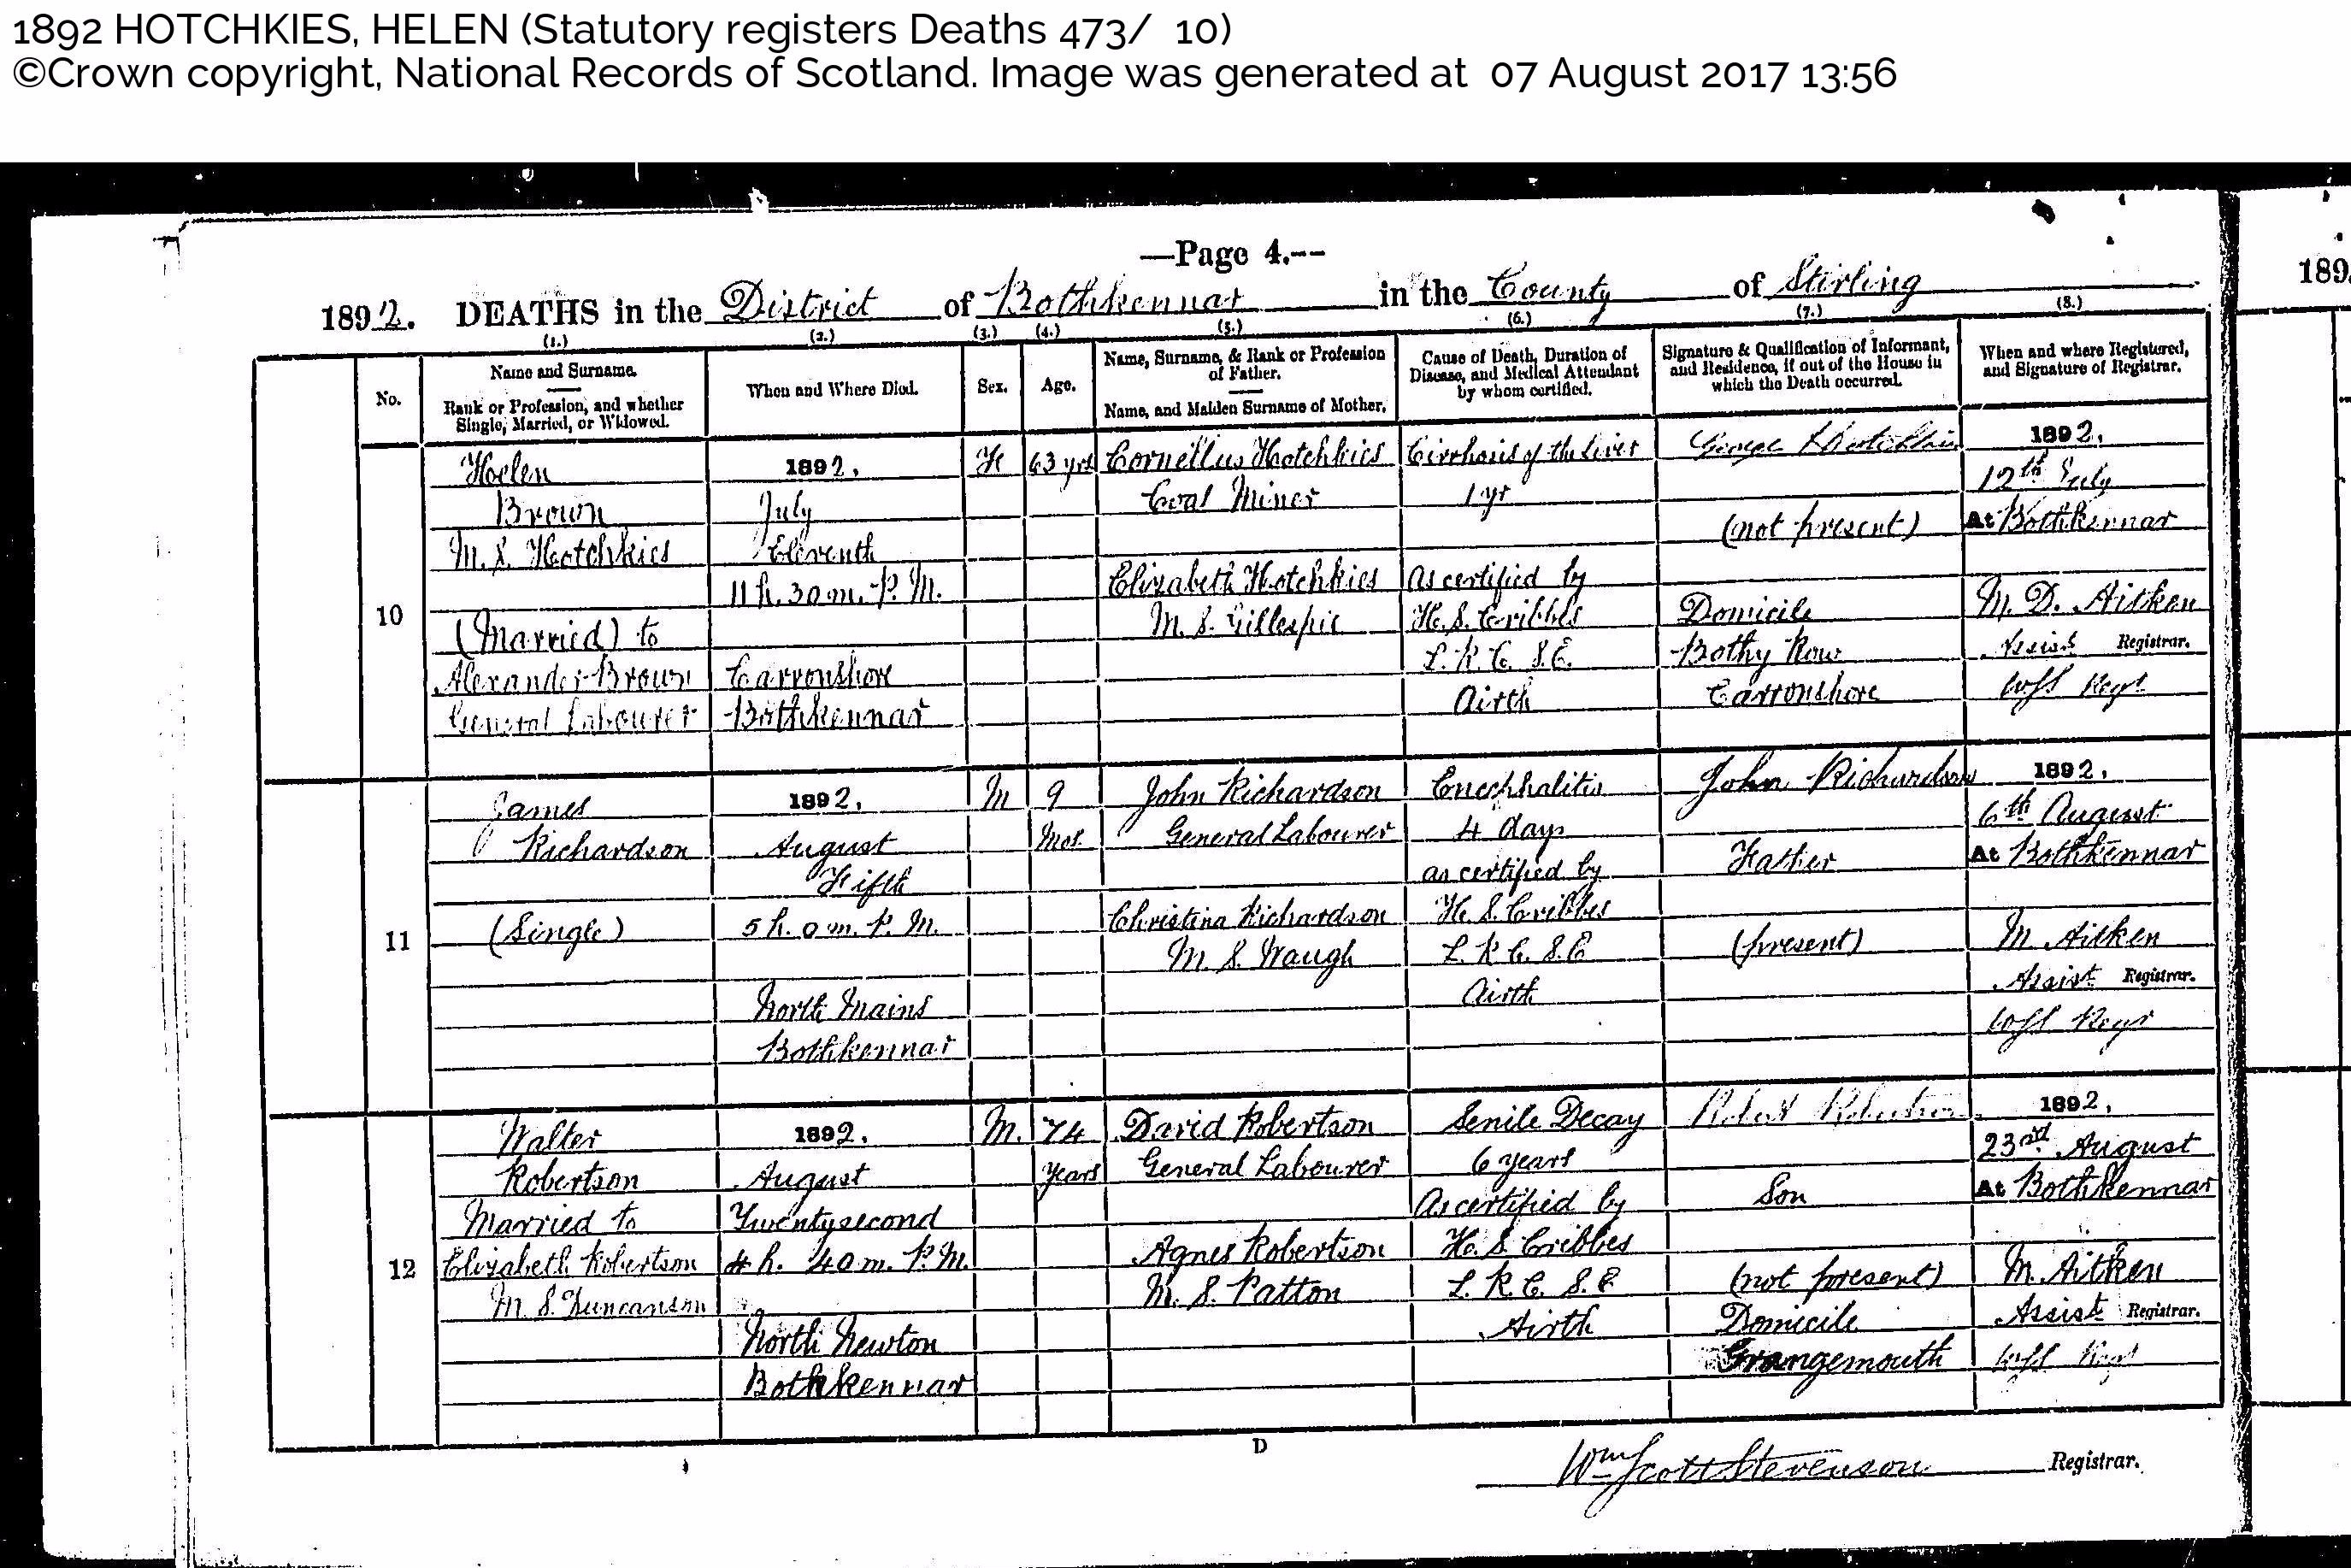 1892 HOTCHKIES, HELEN (Statutory registers Deaths 473/ 10)
©Crown copyright, National Records of Scotland. Image was generated at 07 August 2017 13:56
—Page 4.--
1892. DEATHS in the District of Bothkennar in the County of Stirling
189
(1.) (2.) (3.) (4.) (5.) (6.) (7.) (8.)
No.
Name and Surname.
Rank or Profession, and whether
Single, Married, or Widowed.
When and Where Died.
Sex.
Age.
Name, Surname, & Rank or Profession
of Father.
Name, and Maiden Surname of Mother.
Cause of Death, Duration of
Disease, and Medical Attendant
by whom certified.
Signature & Qualification of Informant,
and Residence, if out of the House in
which the Death occurred.
When and where Registered,
and Signature of Registrar.
10
Helen
Brown
M. S. Hotchkies
(Married) to
Alexander Brown
General Labourer
1892,
July
Eleventh
11 h. 30 m. P. M.
Carronshore
Bothkennar
F
63 yrs
Cornellius Hotchkies
Coal Miner
Elizabeth Hotchkies
M. S. Gillespie
Cirrhosis of the Liver
1 yr
As certified by
H. S. Cribbes
L. R. C. S. E.
Airth
George Hotchkies
(not present)
Domicile
Bothy Row
Carronshore
1892,
12th July
At Bothkennar
M. D. Aitken
Assist Registrar.
WSS Regr
11
James
Richardson
(Single)
1892,
August
Fifth
5 h. 0 m. P. M.
North Mains
Bothkennar
M
9
Mos.
John Richardson
General Labourer
Christina Richardson
M. S. Waugh
Encephalitis
4 days
as certified by
H. S. Cribbes
L. R. C. S. E
Airth
John Richardson
Father
(present)
1892,
6th August
At Bothkennar
M. Aitken
Assist Registrar.
WSS Regr
12
Walter
Robertson
Married to
Elizabeth Robertson
M. S. Duncanson
1892.
August
Twentysecond
4 h. 40 m. P. M.
North Newton
Bothkennar
M.
74
Years
David Robertson
General Labourer
Agnes Robertson
M. S. Patton
Senile Decay
6 years
As certified by
H. S. Cribbes
L. R. C. S. E
Airth
Robert Robertson
Son
(not present)
Domicile
Grangemouth
1892,
23rd August
At Bothkennar
M. Aitken
Assist Registrar.
WSS Regr
D
Wm Scott Stevenson Registrar.